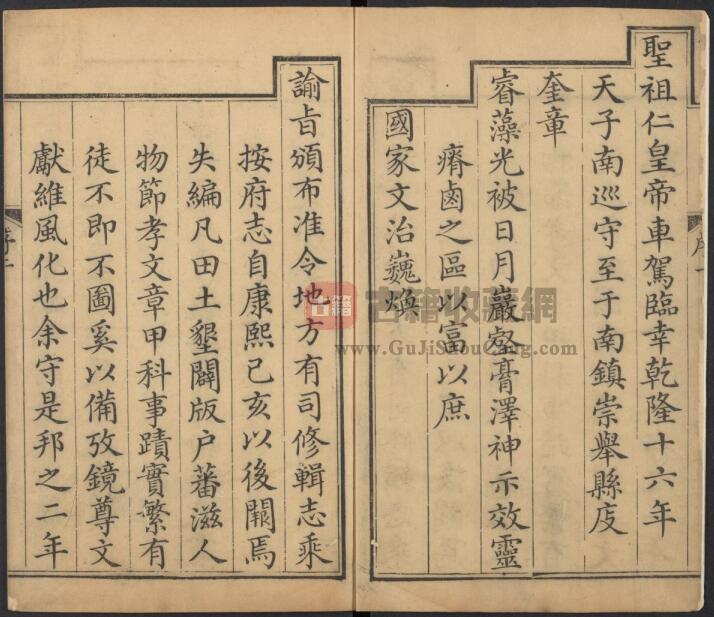 聖祖仁皇帝車駕臨幸乾隆十六年
天子南巡守至于南鎮崇舉縣庋
奎章
睿藻光被日月巖壑膏澤神示效靈
瘠鹵之區以富以庶
國家文治巍煥
諭㫖頒布准令地方有司修輯志乘
按府志自康熙己亥以後闕焉
失編凡田土墾闢版户蕃滋人
物節孝文章甲科事蹟實繁有
徒不即不圖奚以備攷鏡尊文
獻維風化也余守是邦之二年
古籍 古籍收藏網
www.GuJiShouCang.com